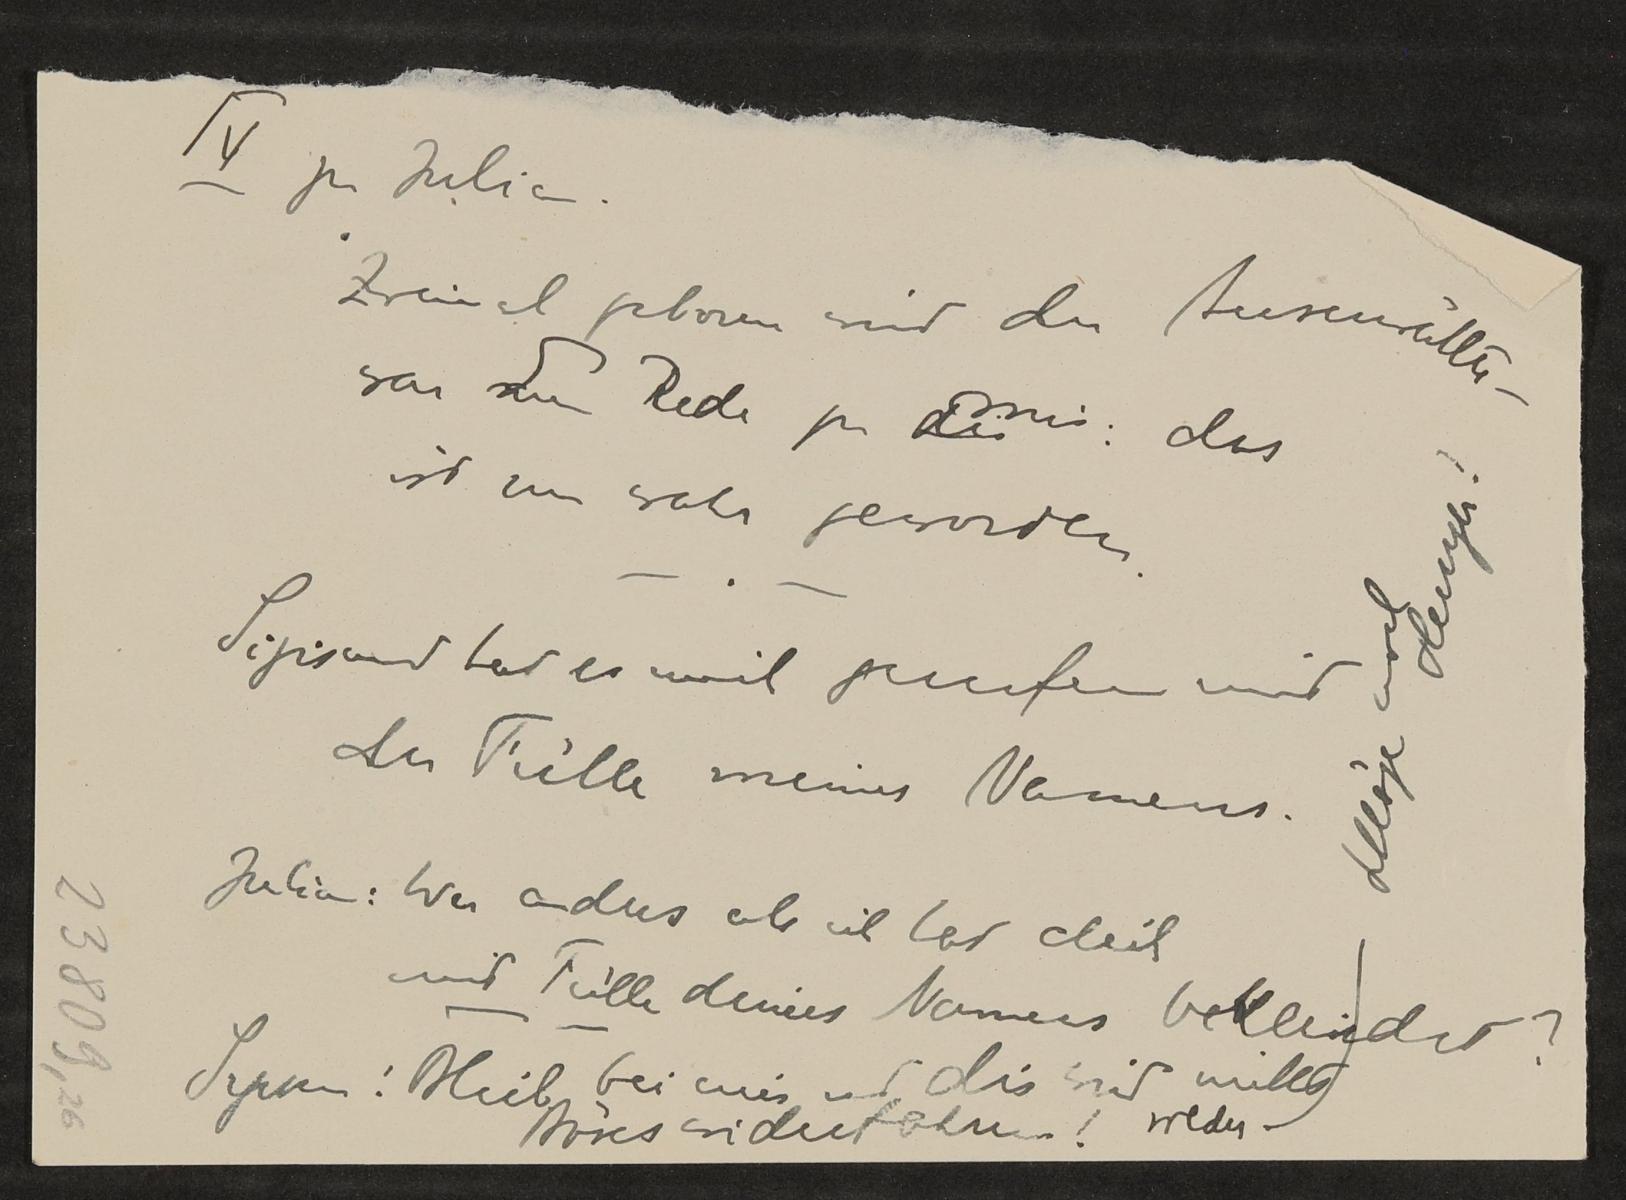 IV zu Julian.
Zweimal geboren wird der Auserwählte –
war seine Rede zu mir: das
ist nun wahr geworden.
— . —
Sigismund hat es mich gerufen mit
der Fülle meines Namens.
Julian: Wer anders als ich hat dich
mit Fülle deines Namens bekleidet?
Sigism: Bleib bei mir und dir wird nichts
Böses widerfahren! wieder –
noch
23809,26